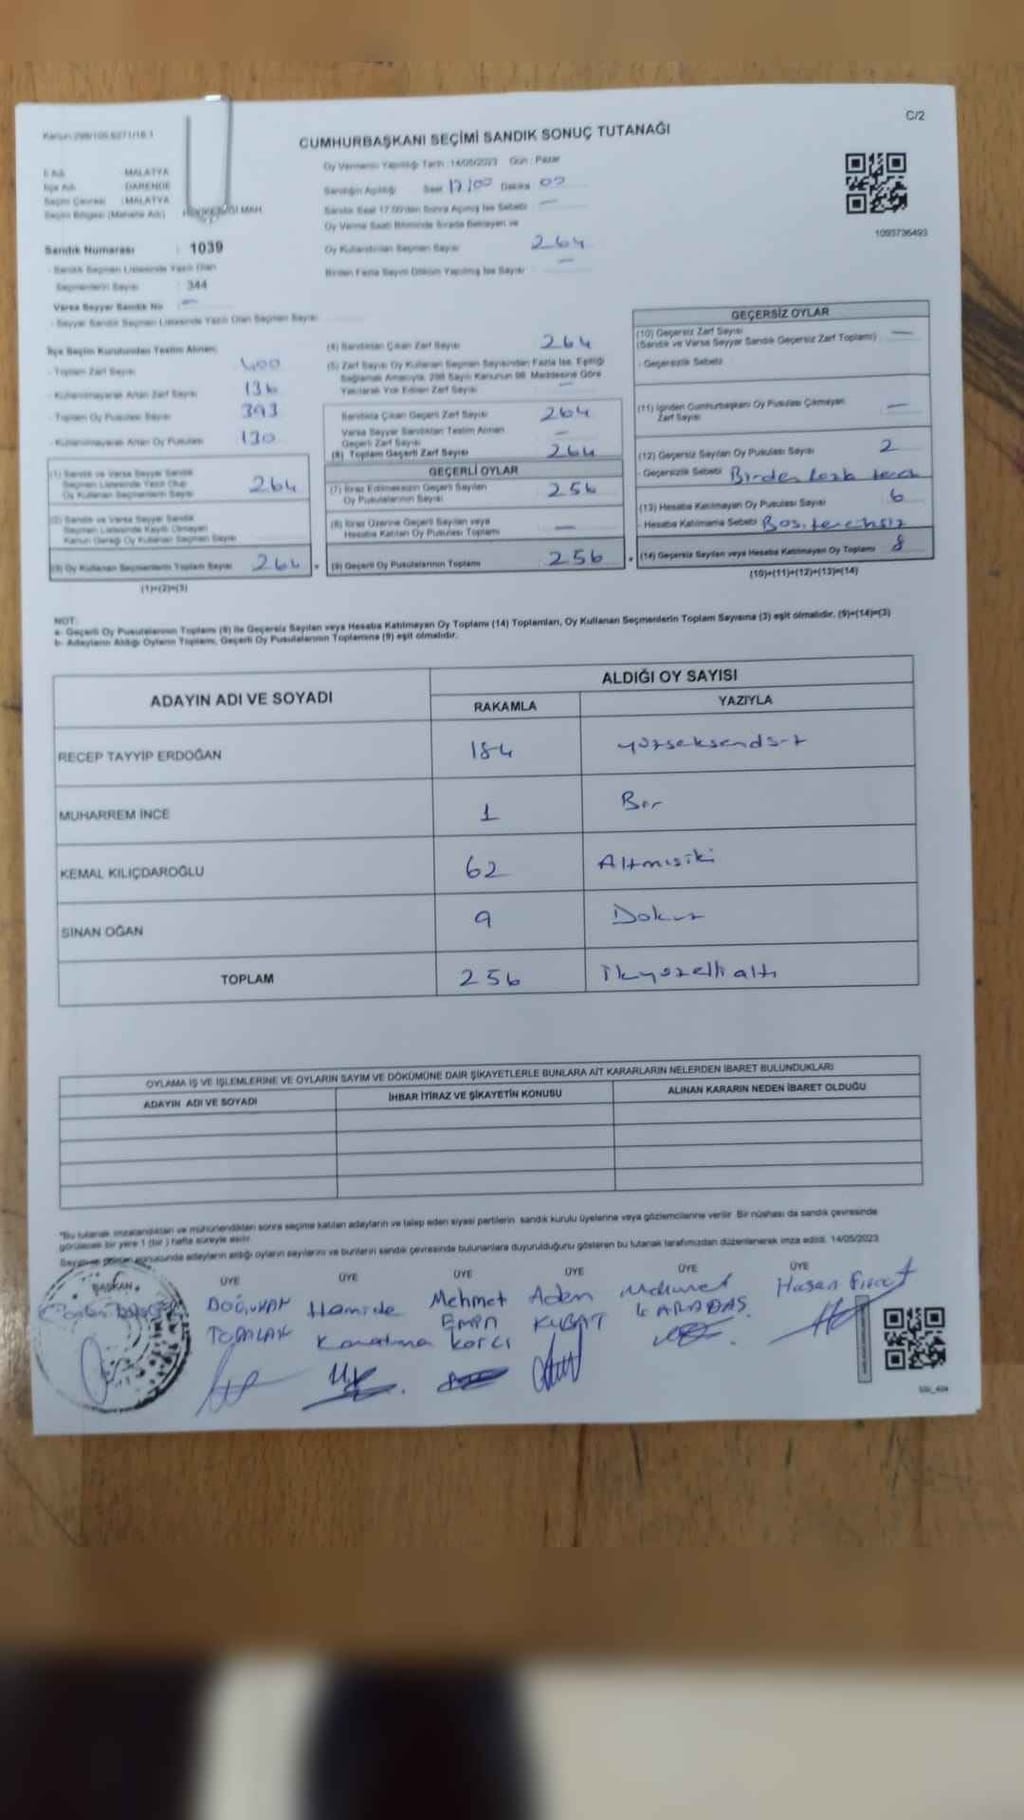 C/2
Kanun 298/105,6271/18.1
CUMHURBAŞKANI SEÇİMİ SANDIK SONUÇ TUTANAĞI
Oy Vermenin Yapıldığı Tarih :14/05/2023 Gün : Pazar
İl Adı : MALATYA
İlçe Adı : DARENDE
Seçim Çevresi : MALATYA
Seçim Bölgesi (Mahalle Adı) MAH.
Sandığın Açıldığı Saat 17/00 Dakika 00
Sandık Saat 17:00'den Sonra Açılmış İse Sebebi —
Oy Verme Saati Bitiminde Sırada Bekleyen ve
Oy Kullandırılan Seçmen Sayısı 264
Birden Fazla Sayım Döküm Yapılmış İse Sayısı —
1093736493
Sandık Numarası : 1039
- Sandık Seçmen Listesinde Yazılı Olan
Seçmenlerin Sayısı : 344
Varsa Seyyar Sandık No : —
- Seyyar Sandık Seçmen Listesinde Yazılı Olan Seçmen Sayısı
İlçe Seçim Kurulundan Teslim Alınan;
- Toplam Zarf Sayısı 400
- Kullanılmayarak Artan Zarf Sayısı 136
- Toplam Oy Pusulası Sayısı 393
- Kullanılmayarak Artan Oy Pusulası 130
(1) Sandık ve Varsa Seyyar Sandık
Seçmen Listesinde Yazılı Olup
Oy Kullanan Seçmenlerin Sayısı 264
(2) Sandık ve Varsa Seyyar Sandık
Seçmen Listesinde Kayıtlı Olmayan
Kanun Gereği Oy Kullanan Seçmen Sayısı
(3) Oy Kullanan Seçmenlerin Toplam Sayısı 264
(1)+(2)=(3)
(4) Sandıktan Çıkan Zarf Sayısı 264
(5) Zarf Sayısı Oy Kullanan Seçmen Sayısından Fazla İse, Eşitliği
Sağlamak Amacıyla, 298 Sayılı Kanunun 98. Maddesine Göre
Yakılarak Yok Edilen Zarf Sayısı —
Sandıkta Çıkan Geçerli Zarf Sayısı 264
Varsa Seyyar Sandıktan Teslim Alınan
Geçerli Zarf Sayısı —
(6) Toplam Geçerli Zarf Sayısı 264
GEÇERLİ OYLAR
(7) İtiraz Edilmeksizin Geçerli Sayılan
Oy Pusulalarının Sayısı 256
(8) İtiraz Üzerine Geçerli Sayılan veya
Hesaba Katılan Oy Pusulası Toplamı —
(9) Geçerli Oy Pusulalarının Toplamı 256
GEÇERSİZ OYLAR
(10) Geçersiz Zarf Sayısı
(Sandık ve Varsa Seyyar Sandık Geçersiz Zarf Toplamı) —
- Geçersizlik Sebebi
(11) İçinden Cumhurbaşkanı Oy Pusulası Çıkmayan
Zarf Sayısı —
(12) Geçersiz Sayılan Oy Pusulası Sayısı 2
- Geçersizlik Sebebi Birden
(13) Hesaba Katılmayan Oy Pusulası Sayısı 6
- Hesaba Katılmama Sebebi Boş, tercihsiz
(14) Geçersiz Sayılan veya Hesaba Katılmayan Oy Toplamı 8
(10)+(11)+(12)+(13)=(14)
NOT:
a- Geçerli Oy Pusulalarının Toplamı (9) ile Geçersiz Sayılan veya Hesaba Katılmayan Oy Toplamı (14) Toplamları, Oy Kullanan Seçmenlerin Toplam Sayısına (3) eşit olmalıdır. (9)+(14)=(3)
b- Adayların Aldığı Oyların Toplamı, Geçerli Oy Pusulalarının Toplamına (9) eşit olmalıdır.
ADAYIN ADI VE SOYADI
ALDIĞI OY SAYISI
RAKAMLA YAZIYLA
RECEP TAYYİP ERDOĞAN 184 yüzseksendört
MUHARREM İNCE 1 Bir
KEMAL KILIÇDAROĞLU 62 Altmışiki
SİNAN OĞAN 9 Dokuz
TOPLAM 256 ikiyüzellialtı
OYLAMA İŞ VE İŞLEMLERİNE VE OYLARIN SAYIM VE DÖKÜMÜNE DAİR ŞİKAYETLERLE BUNLARA AİT KARARLARIN NELERDEN İBARET BULUNDUKLARI
ADAYIN ADI VE SOYADI
İHBAR İTİRAZ VE ŞİKAYETİN KONUSU
ALINAN KARARIN NEDEN İBARET OLDUĞU
*Bu tutanak imzalandıktan ve mühürlendikten sonra seçime katılan adayların ve talep eden siyasi partilerin sandık kurulu üyelerine veya gözlemcilerine verilir. Bir nüshası da sandık çevresinde
görülecek bir yere 1 (bir) hafta süreyle asılır.
Sayım ve döküm sonucunda adayların aldığı oyların sayılarını ve bunların sandık çevresinde bulunanlara duyurulduğunu gösteren bu tutanak tarafımızdan düzenlenerek imza edildi. 14/05/2023
BAŞKAN ÜYE ÜYE ÜYE ÜYE ÜYE ÜYE
DOĞUKAN TOPALAK
Hamide Karatma
Mehmet Emin Korcı
Adem KUBAT
Mehmet KARADAŞ
Hasan Fırat